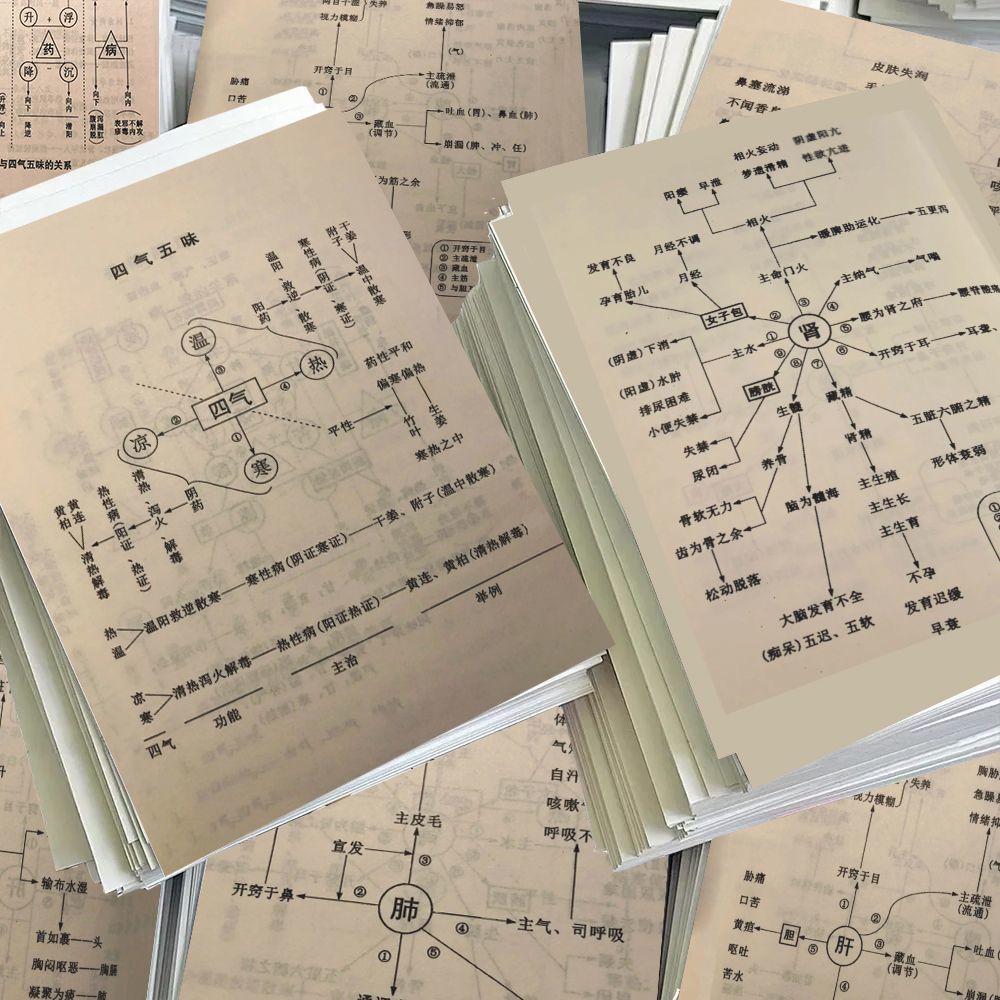 升 + 浮
药
降 - 沉
病
向下
向内
向下
向内
降逆
潜阳
与四气五味的关系
视力模糊
失养
急躁易怒
情绪抑郁
(气)
开窍于目
①
②
主疏泄
(流通)
胁痛
口苦
③
藏血
(调节)
吐血(胃)、鼻血(肺)
崩漏(肿、冲、任)
为筋之余
① 开窍于目
② 主疏泄
③ 藏血
④ 主筋
皮肤失润
鼻塞流涕
四气五味
温
热
四气
凉
寒
③
④
②
①
阳药
温阳、救逆、散寒
寒性病(阴证、寒证)
附子
干姜
温中散寒
药性平和
偏寒偏热
平性
竹叶
生姜
寒热之中
阴药
清热、泻火、解毒
热性病(阳证、热证)
黄连
黄柏
清热解毒
热
温
温阳救逆散寒—寒性病(阴证寒证)—干姜、附子(温中散寒)
凉
寒
清热泻火解毒—热性病(阳证热证)—黄连、黄柏(清热解毒)
四气
功能
主治
举例
相火妄动
阴虚阳亢
阳痿
早泄
梦遗滑精
性欲亢进
相火
暖脾助运化
五更泻
发育不良
月经不调
月经
孕育胎儿
主命门火
主纳气
气喘
女子包
②
③
④
肾
⑤
腰为肾之府
①
⑥
开窍于耳
耳聋
(阴虚)下消
主水
(阳虚)水肿
排尿困难
小便失禁
膀胱
⑨
⑧
⑦
生髓
藏精
五脏六腑之精
失禁
尿闭
养骨
肾精
形体衰弱
骨软无力
脑为髓海
主生殖
主生长
主生育
齿为骨之余
松动脱落
不孕
大脑发育不全
发育迟缓
(痴呆)五迟、五软
早衰
输布水湿
首如裹—头
胸闷呕恶—胸膈
凝聚为痰—肺
主皮毛
宣发
③
开窍于鼻
②
肺
④
主气、司呼吸
①
⑤
自汗
咳嗽
视力模糊
失养
开窍于目
①
②
主疏泄
(流通)
胁痛
口苦
黄疸
呕吐
苦水
胆
⑤
肝
③
藏血
(调节)
④